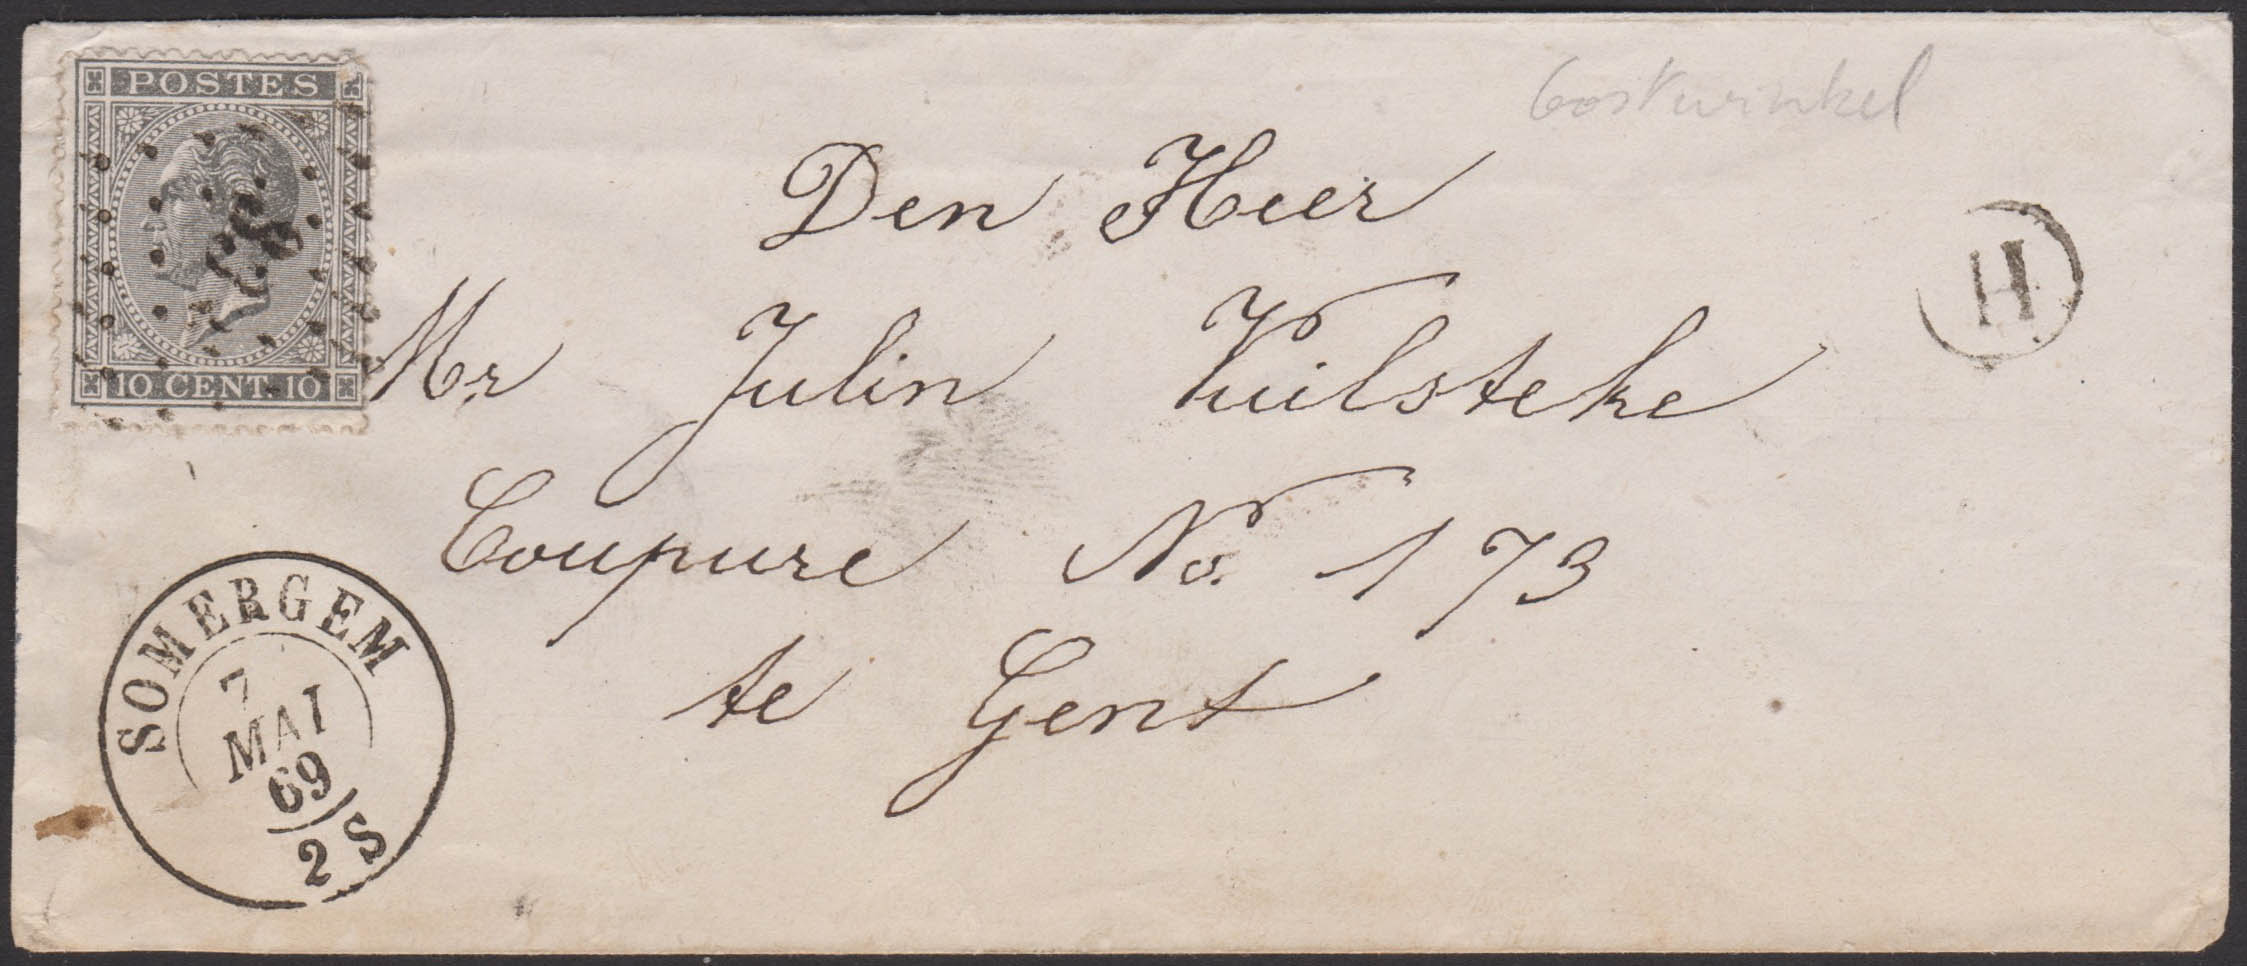 POSTES
10 CENT. 10
Oostwinkel
Den Heer
H
Mr Julin Vuilsteke
Coupure No. 173
te Gent
SOMERGEM
7
MAI
69
2 S